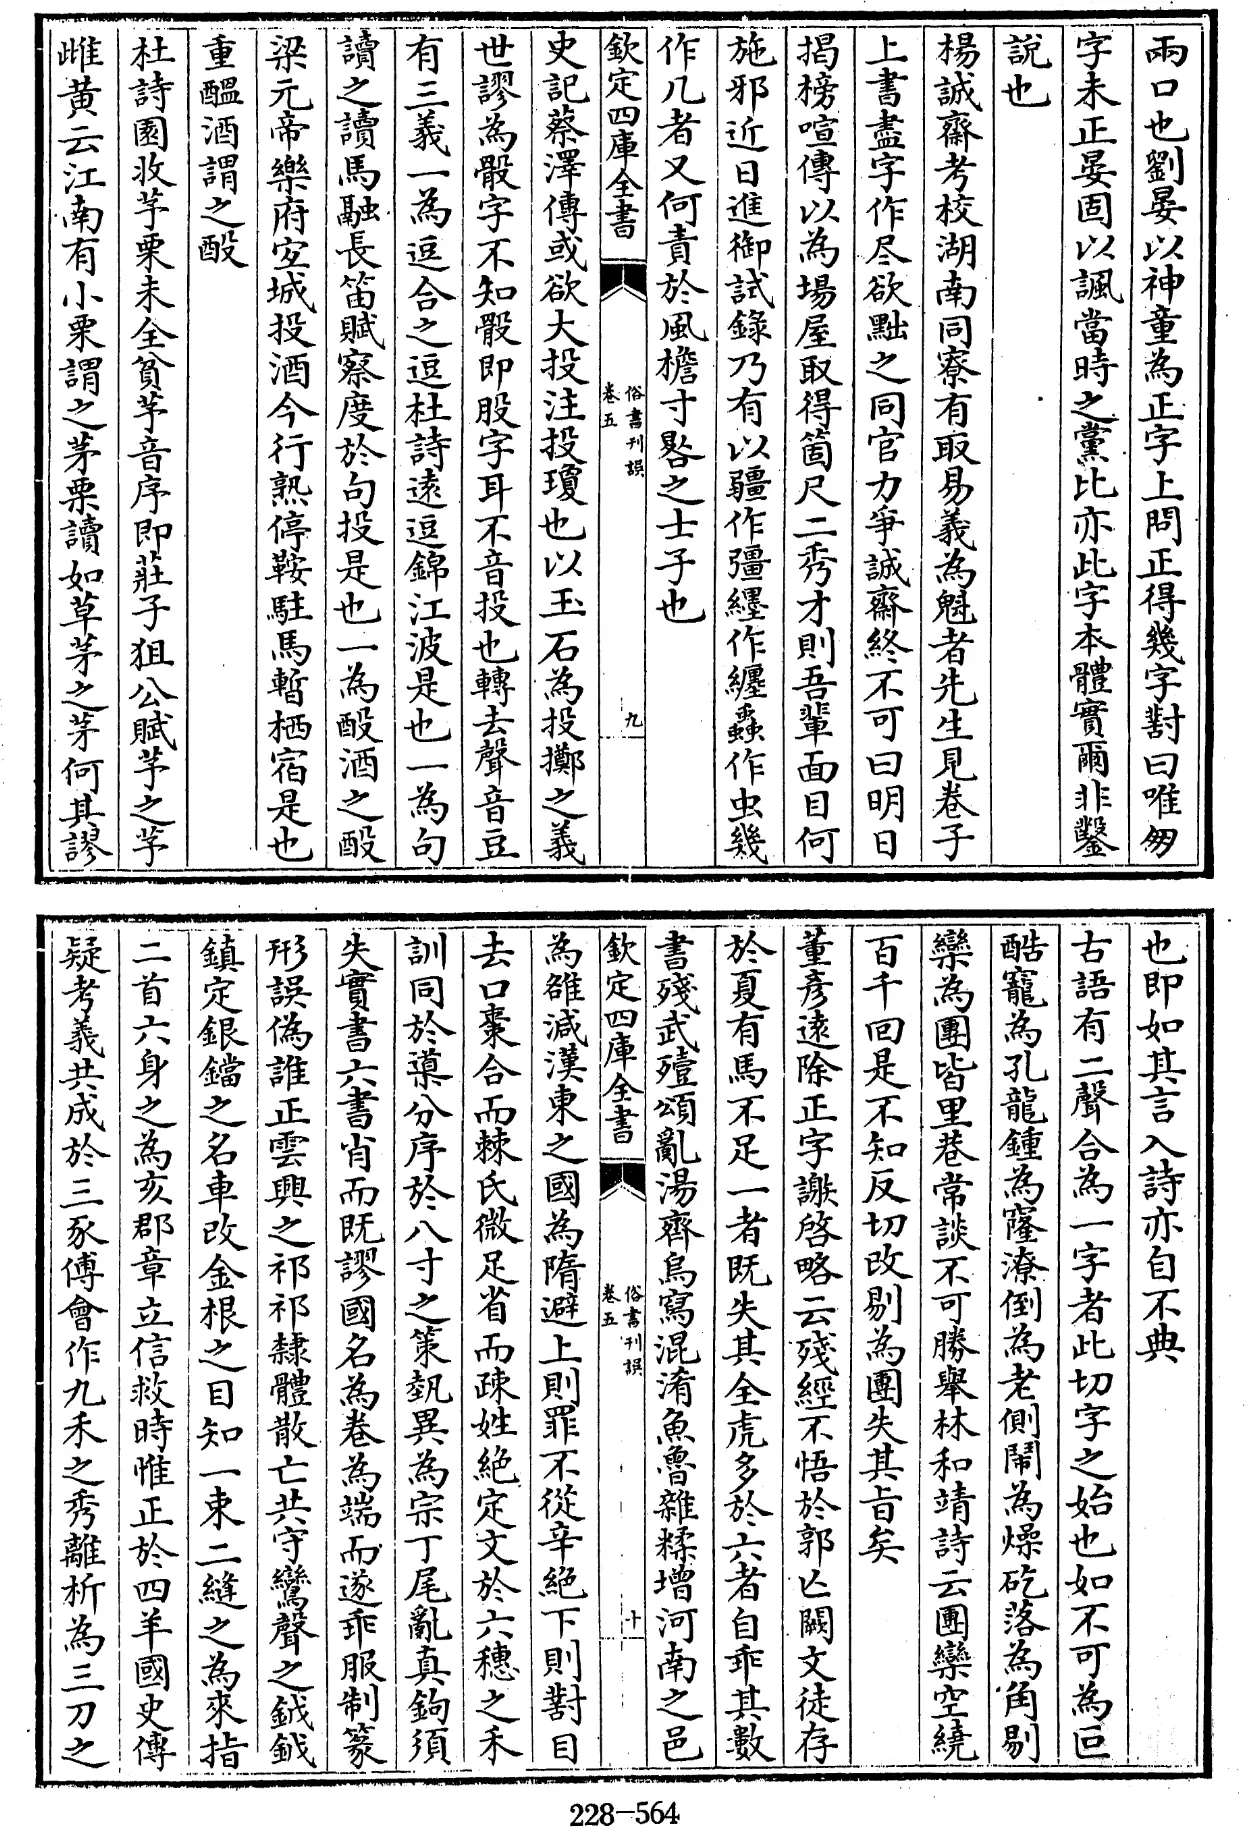 兩口也劉晏以神童為正字上問正得幾字對曰唯朋
字未正晏固以諷當時之黨比亦此字本體實爾非鑿
說也
楊誠齋考校湖南同寮有取易義為魁者先生見卷子
上書盡字作尽欲黜之同官力爭誠齋終不可曰明日
揭榜喧傳以為場屋取得箇尺二秀才則吾輩面目何
施邪近日進御試錄乃有以疆作彊纒作纏蟲作虫幾
作几者又何責於風檐寸晷之士子也
欽定四庫全書
俗書刊誤
卷五
九
史記蔡澤傳或欲大投注投瓊也以玉石為投擲之義
世謬為骰字不知骰即股字耳不音投也轉去聲音豆
有三義一為逗合之逗杜詩遠逗錦江波是也一為句
讀之讀馬融長笛賦察度於句投是也一為酘酒之酘
梁元帝樂府宜城投酒今行熟停鞍駐馬暫栖宿是也
重醞酒謂之酘
杜詩園收芋栗未全貧芋音序即莊子狙公賦芧之芧
雌黄云江南有小栗謂之茅栗讀如草茅之茅何其謬
也即如其言入詩亦自不典
古語有二聲合為一字者此切字之始也如不可為叵
酷寵為孔龍鍾為窿潦倒為老側鬧為燥矻落為角剔
欒為團皆里巷常談不可勝舉林和靖詩云團欒空繞
百千回是不知反切改剔為團失其旨矣
董彦遠除正字謝啓略云殘經不悟於郭亡闕文徒存
於夏有馬不足一者既失其全虎多於六者自乖其數
書殘武殪頌亂湯齊烏寫混淆魚魯雜糅增河南之邑
欽定四庫全書
俗書刊誤
卷五
十
為雒減漢東之國為隋避上則罪不從辛絶下則對目
去口棗合而棘氏微足省而疎姓絶定文於六穗之禾
訓同於導分序於八寸之策埶異為宗丁尾亂真鉤須
失實書六書肯而既謬國名為卷為端而遂乖服制篆
形誤偽誰正雲興之祁祁隸體散亡共守鸞聲之鉞鉞
鎮定銀鐺之名車改金根之目知一束二縫之為來指
二首六身之為亥郡章立信救時惟正於四羊國史傳
疑考義共成於三豕傅會作九禾之秀離析為三刀之
228-564